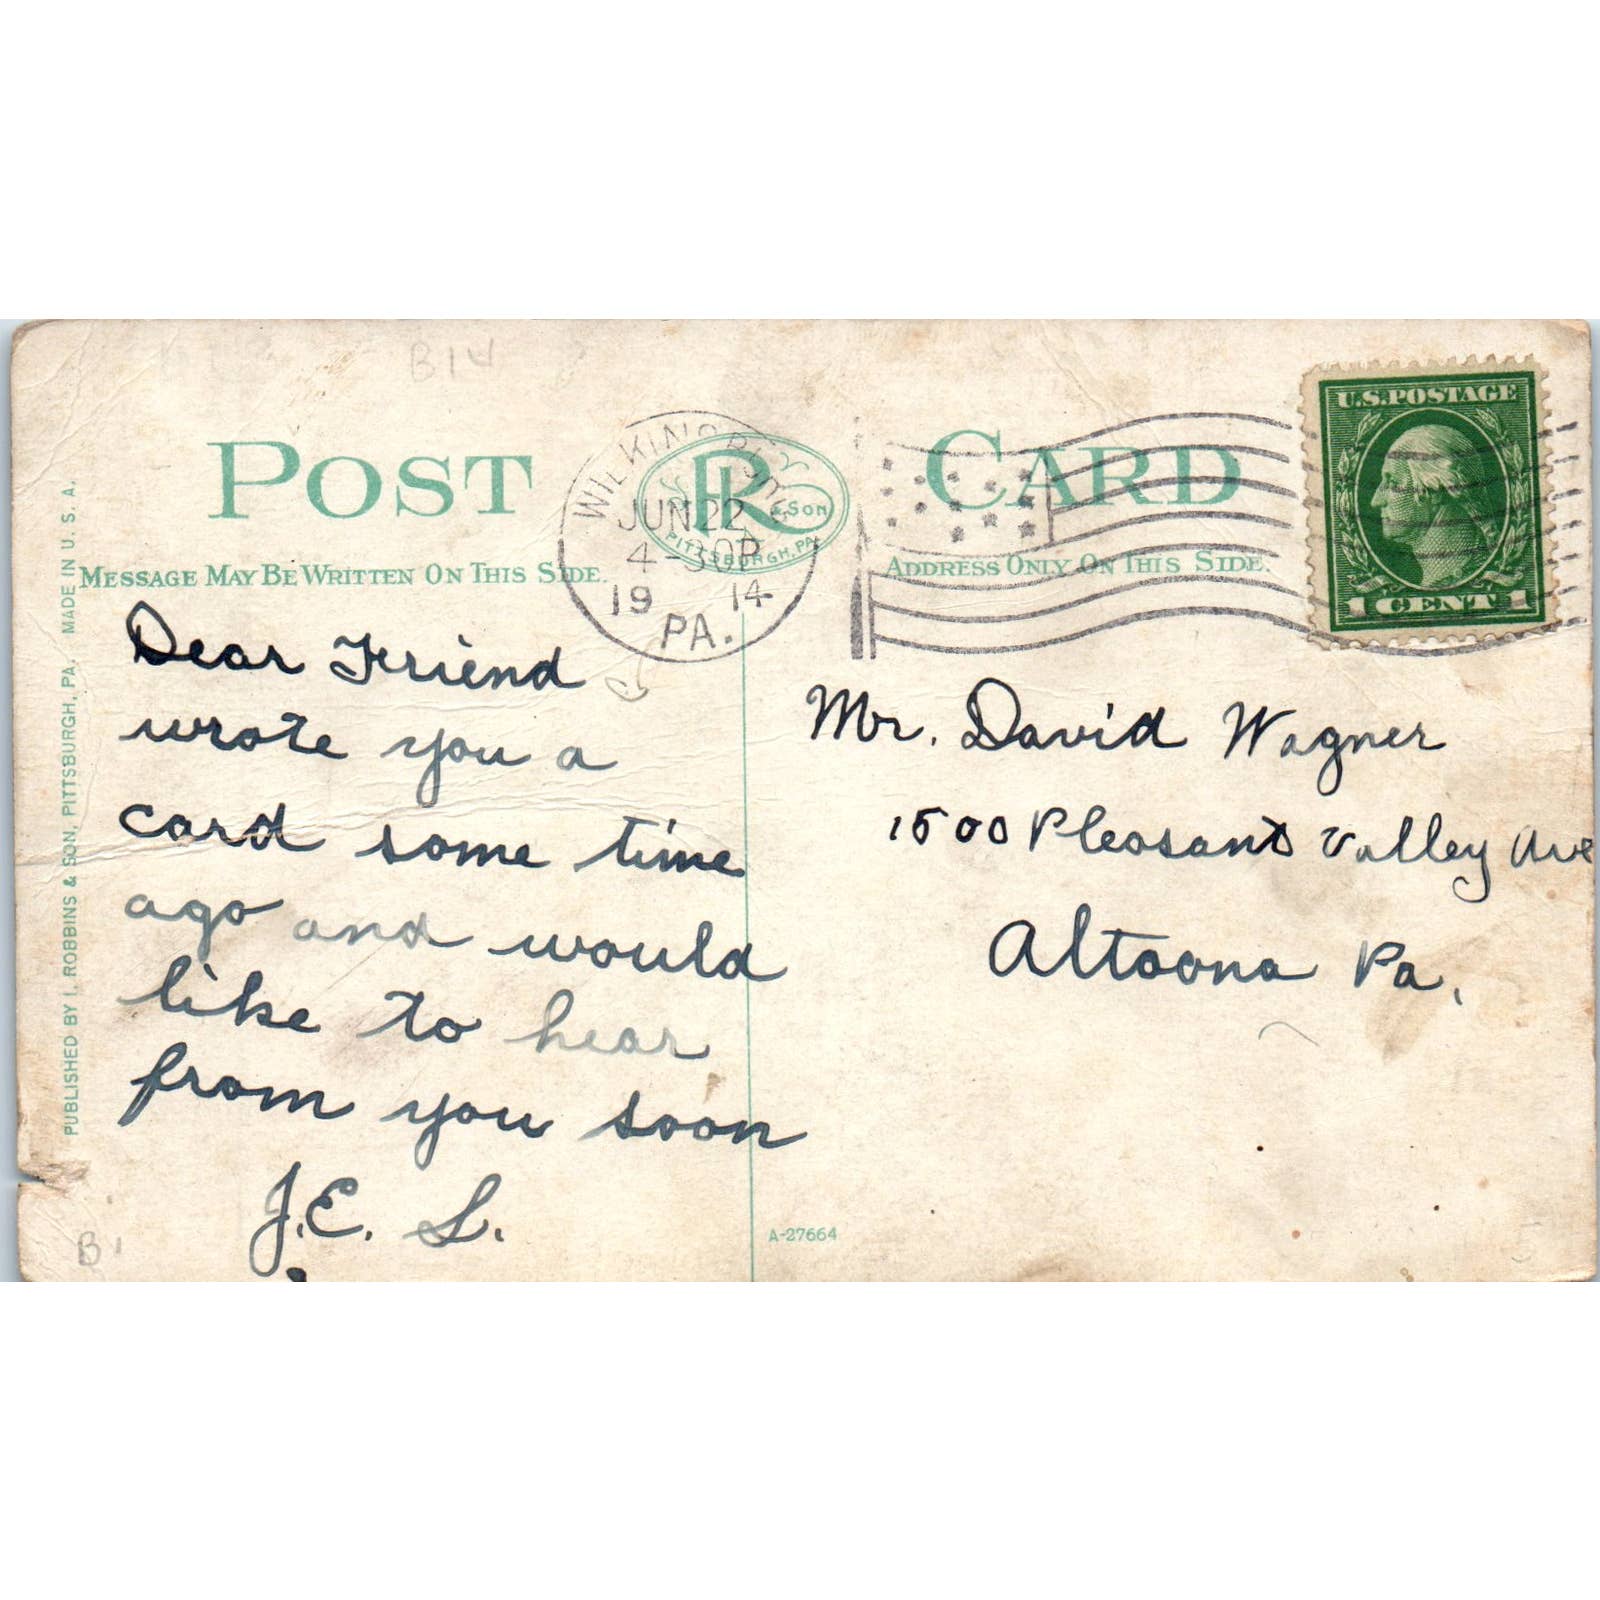 B14
POST CARD
R & SON
PITTSBURGH, PA.
WILKINSBURG
JUN 22
4-30P
19 14
PA.
U.S. POSTAGE
1 CENT 1
MESSAGE MAY BE WRITTEN ON THIS SIDE.
ADDRESS ONLY ON THIS SIDE.
Dear Friend
wrote you a
card some time
ago and would
like to hear
from you soon
J.E. L.
Mr. David Wagner
1500 Pleasant Valley Ave
Altoona Pa.
PUBLISHED BY I. ROBBINS & SON, PITTSBURGH, PA. MADE IN U.S.A.
A-27664
B